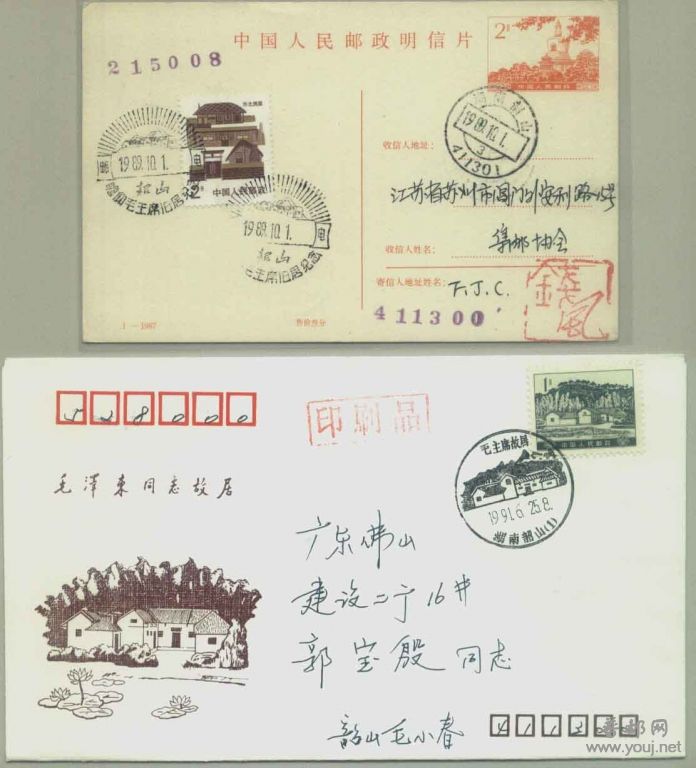 中国人民邮政明信片
215008
2分
中国人民邮政
东北民居
2分
中国人民邮政
邮
1989.10.1.
电
韶山
瞻仰毛主席旧居纪念
1989.10.1.
电
韶山
毛主席旧居纪念
湖南韶山
1989.10.1.
3
411301
收信人地址:
江苏省苏州市阊门外安利路15号
收信人姓名:
集邮协会
寄信人地址姓名:
F.J.C.
411300
1-1987
售价叁分
528000
印刷品
1分
中国人民邮政
毛主席故居
1991.6.25.8.
湖南韶山(1)
毛泽东同志故居
广东佛山
建设二宁16井
郭宝殷同志
韶山毛小春
www.youj.net